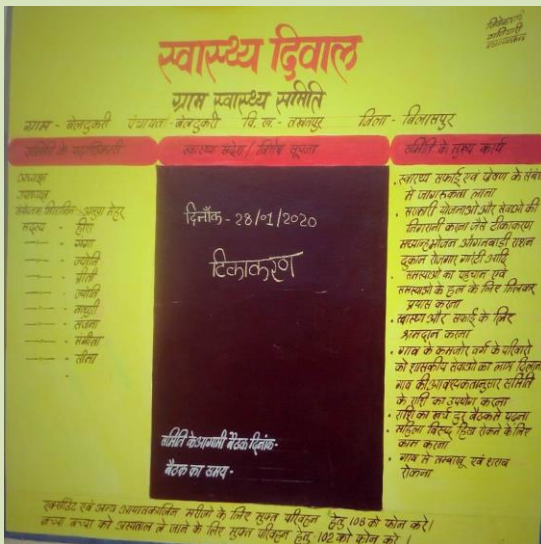 स्वास्थ्य दिवाल
ग्राम स्वास्थ्य समिति
ग्राम - बेलदुकरी पंचायत - बेलदुकरी वि. ख. - तखतपुर जिला - बिलासपुर
समिति के पदाधिकारी
अध्यक्ष
उपाध्यक्ष
मितानिन -
सदस्य - हीरा
गंगा
ज्योति
प्रीती
ज्योति
माधुरी
संजना
संगीता
सीता
स्वास्थ्य संदेश / विशेष सूचना
दिनाँक - 28/01/2020
टिकाकरण
समिति के आगामी बैठक दिनांक -
बैठक का समय -
समिति के मुख्य कार्य
• स्वास्थ्य सफाई एवं पोषण के संबंध
में जागरूकता लाना
• सरकारी योजनाओं और सेवाओं की
निगरानी करना जैसे टीकाकरण
मध्यान्हभोजन आंगनबाड़ी राशन
दुकान रोजगार गारंटी आदि
• समस्याओं का पहचान एवं
समस्याओं के हल के लिए मिलकर
प्रयास करना
• स्वास्थ्य और सफाई के लिए
श्रमदान करना
• गांव के कमजोर वर्ग के परिवारों
को शासकीय सेवाओं का लाभ दिलाना
गांव की आवश्यकतानुसार समिति
के राशि का उपयोग करना
• राशि का खर्च हर बैठक में पढ़ना
• महिला विरुद्ध हिंसा रोकने के लिए
काम करना
• गांव में तम्बाखू एवं शराब
रोकना
एक्सीडेंट एवं अन्य आपातकालिन मरीजो के लिए मुफ्त परिवहन हेतु 108 को फोन करे।
बच्चा को अस्पताल ले जाने के लिए मुफ्त परिवहन हेतु 102 को फोन करे।